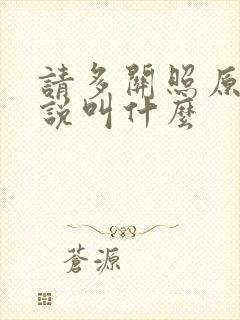 請多關照原
說叫什麼
蒼源